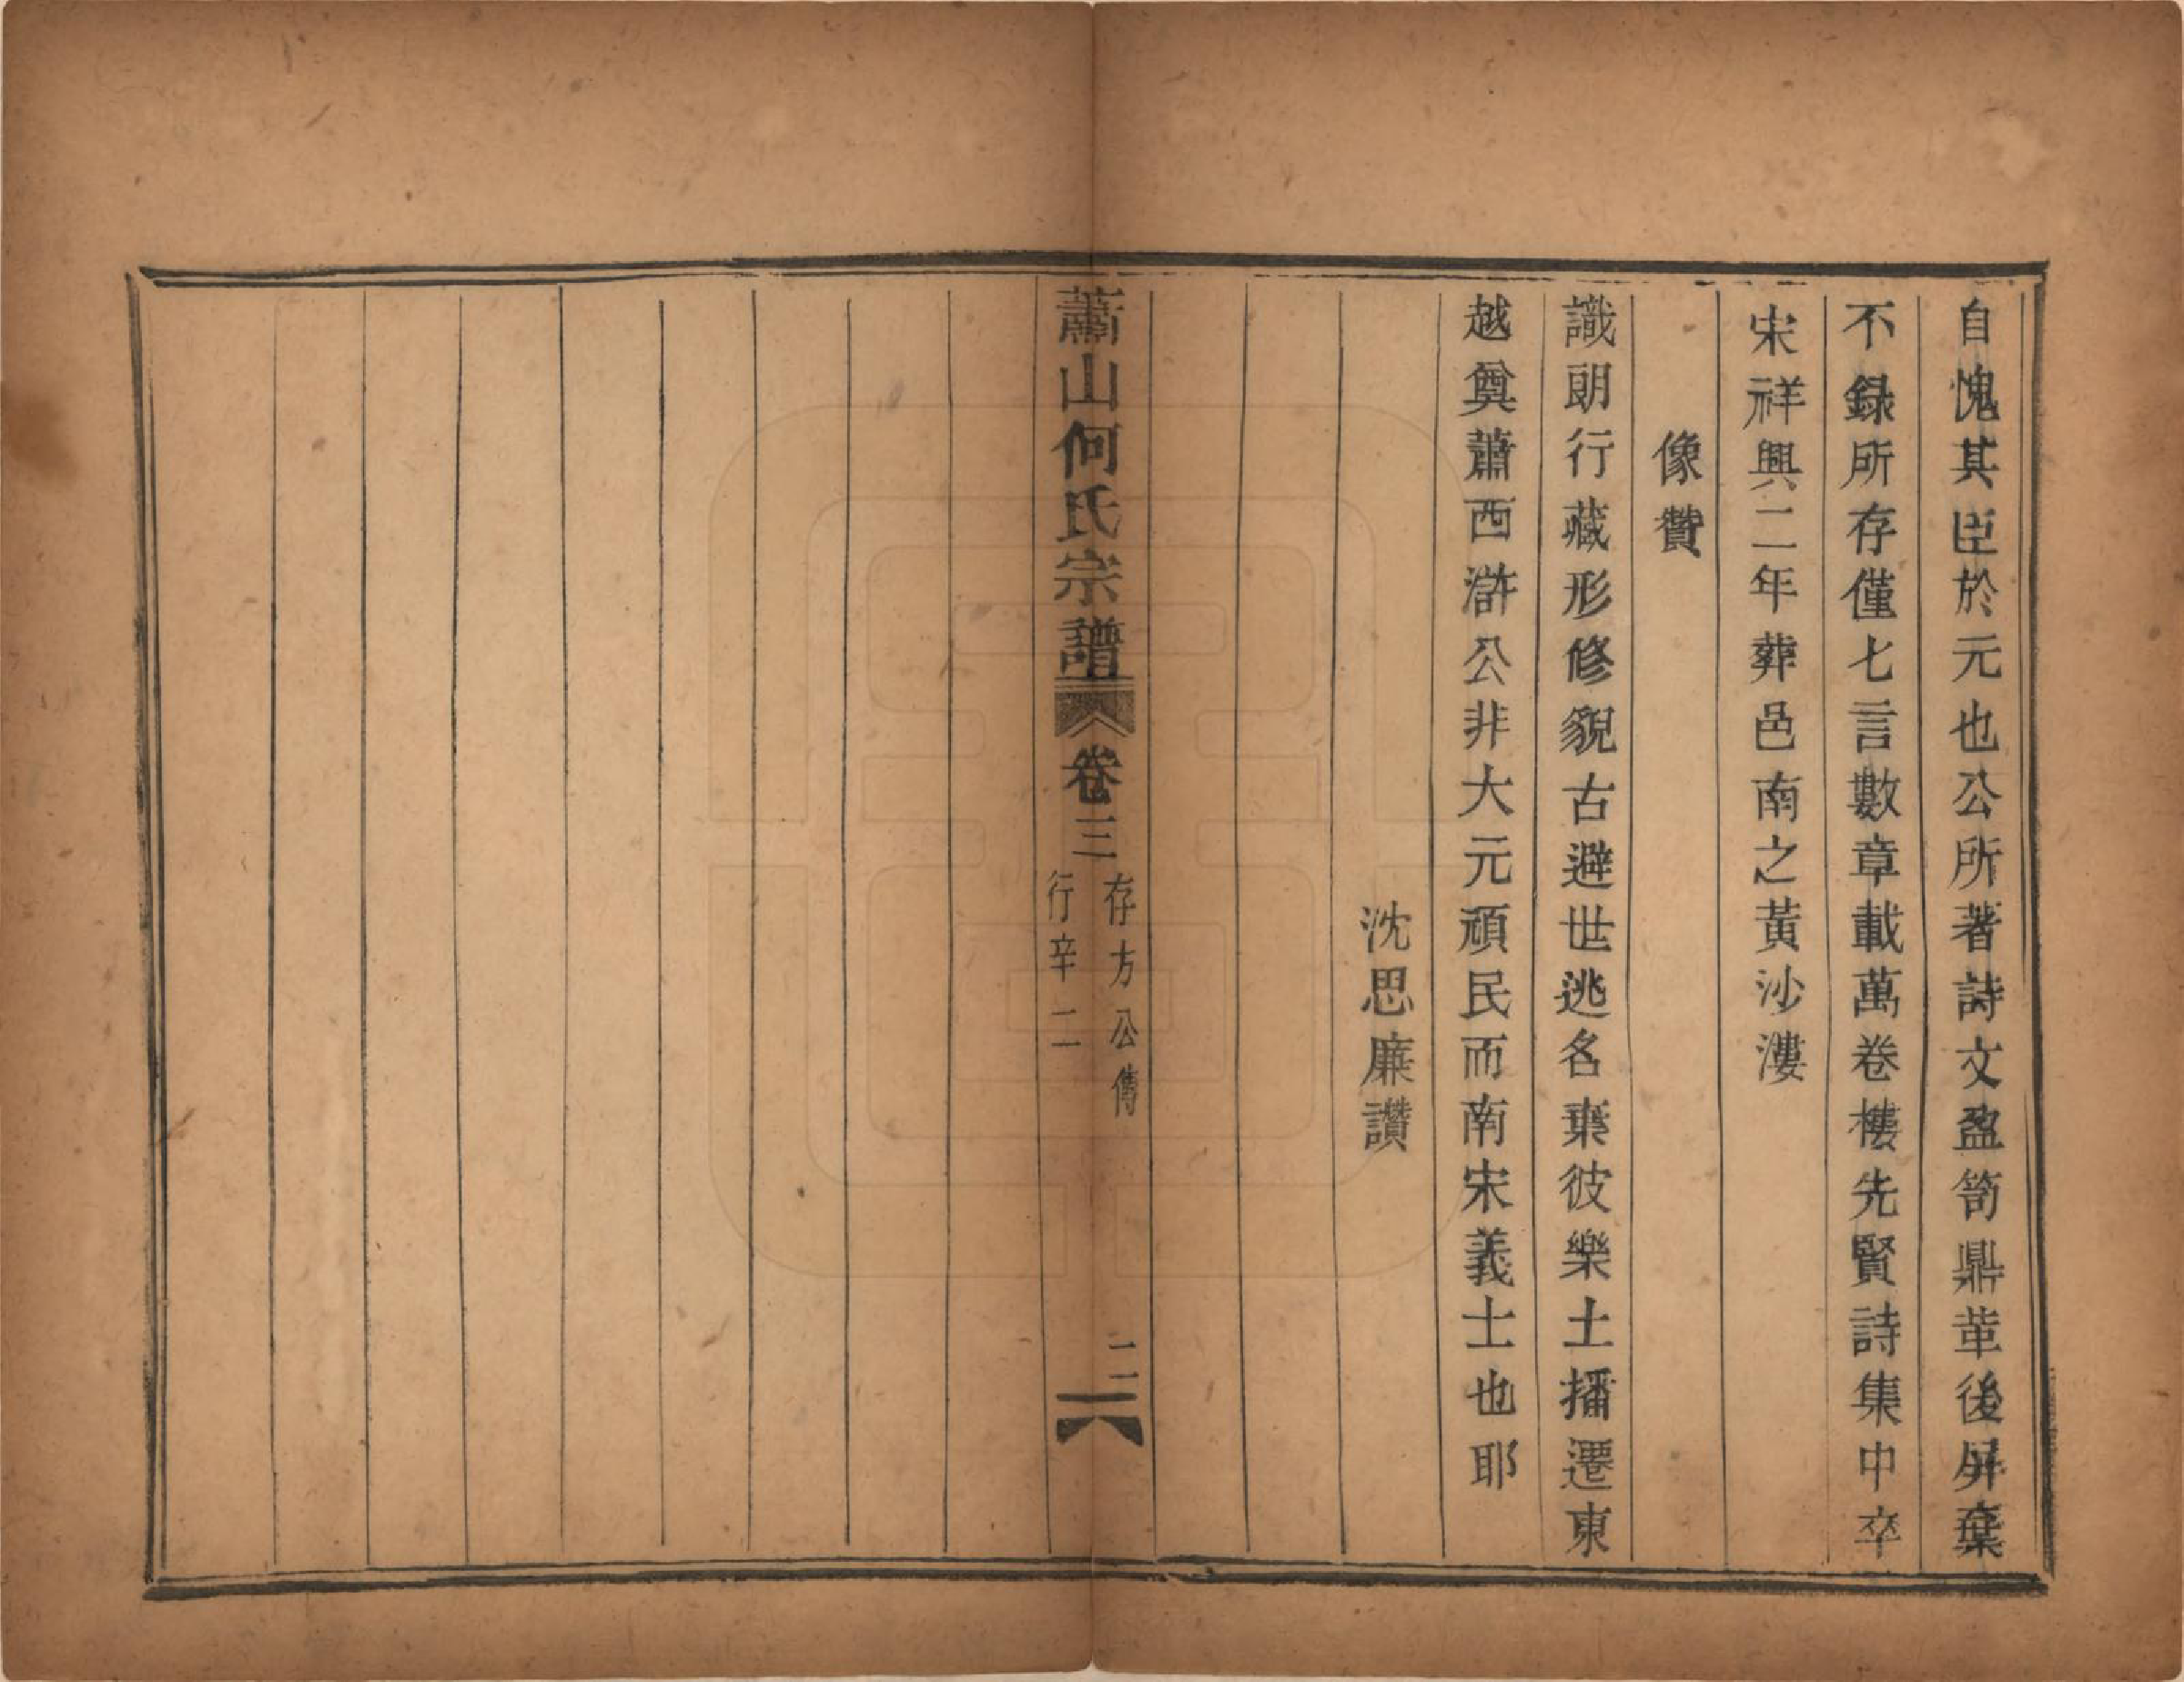 自愧其臣於元也公所著詩文盈笥鼎革後屏棄
不錄所存僅七言數章載萬卷樓先賢詩集中卒
宋祥興二年葬邑南之黃沙漊
像贊
識朗行藏形修貌古避世逃名棄彼樂土播遷東
越奠蕭西滸公非大元頑民而南宋義士也耶
沈思廉讚
蕭山何氏宗譜 卷三 存方公傳 行辛二 二